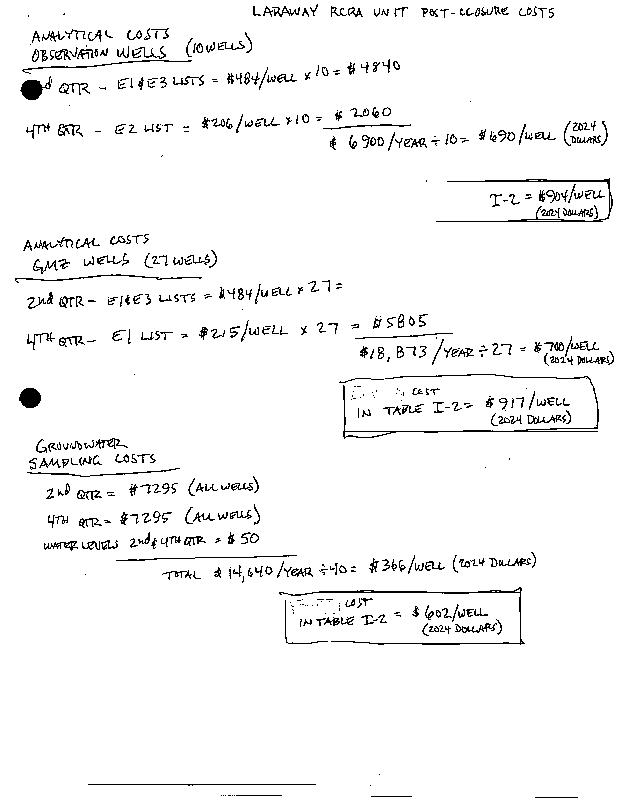 LARAWAY RCRA UNIT POST-CLOSURE COSTS
ANALYTICAL COSTS
OBSERVATION WELLS (10 WELLS)
d QTR - E1&E3 LISTS = $484/WELL × 10 = $4840
4TH QTR - E2 LIST = $206/WELL × 10 = $2060
$6900/YEAR ÷ 10 = $690/WELL (2024 DOLLARS)
I-2 = $904/WELL
(2024 DOLLARS)
ANALYTICAL COSTS
GMZ WELLS (27 WELLS)
2nd QTR - E1&E3 LISTS = $484/WELL × 27 =
4TH QTR - E1 LIST = $215/WELL × 27 = $5805
$18,873/YEAR ÷ 27 = $700/WELL
(2024 DOLLARS)
COST
IN TABLE I-2 = $917/WELL
(2024 DOLLARS)
GROUNDWATER
SAMPLING COSTS
2nd QTR = $7295 (ALL WELLS)
4TH QTR = $7295 (ALL WELLS)
WATER LEVELS 2nd & 4TH QTR = $50
TOTAL $14,640/YEAR ÷ 40 = $366/WELL (2024 DOLLARS)
COST
IN TABLE I-2 = $602/WELL
(2024 DOLLARS)